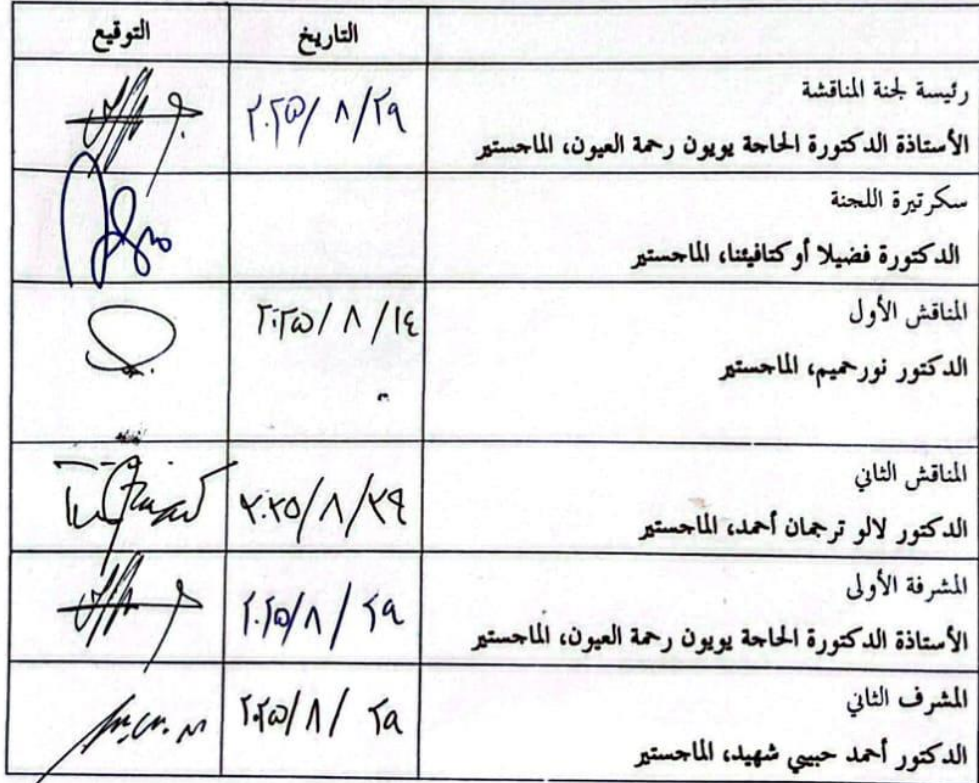 التاريخ التوقيع
رئيسة لجنة المناقشة
الأستاذة الدكتورة الحاجة يويون رحمة العيون، الماجستير
٢٠٢٥/ ٨ /٢٩
سكرتيرة اللجنة
الدكتورة فضيلا أوكتافيئنا، الماجستير
المناقش الأول
الدكتور نورحميم، الماجستير
٢٠٢٥/ ٨ /١٤
المناقش الثاني
الدكتور لالو ترجمان أحمد، الماجستير
٢٠٢٥/٨/٢٩
المشرفة الأولى
الأستاذة الدكتورة الحاجة يويون رحمة العيون، الماجستير
٢٠٢٥/٨ / ٢٩
المشرف الثاني
الدكتور أحمد حبيبي شهيد، الماجستير
٢٠٢٥/٨/ ٢٩